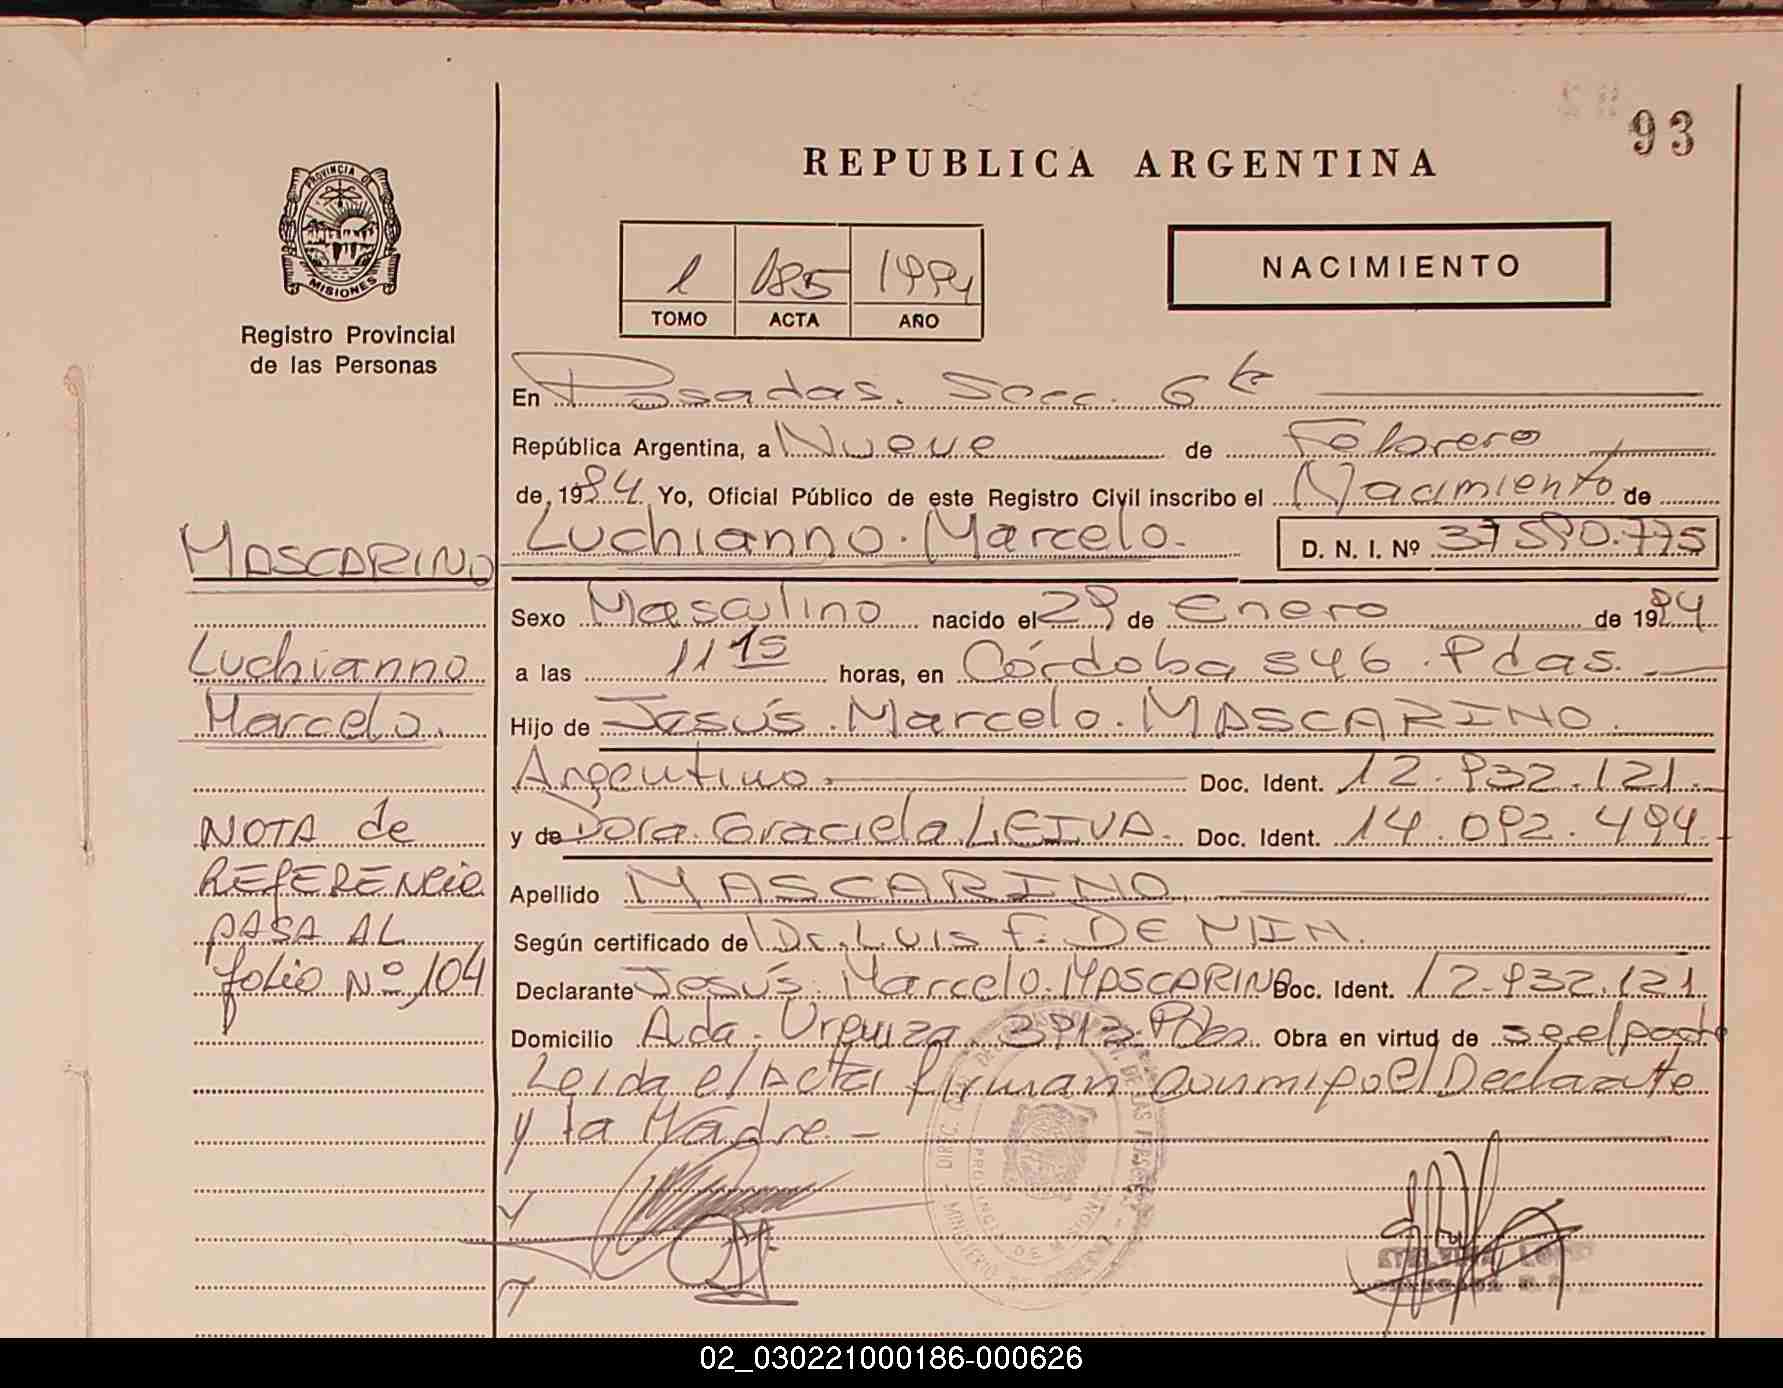 93
REPUBLICA ARGENTINA
PROVINCIA DE
MISIONES
Registro Provincial
de las Personas
1 185 1994
TOMO ACTA AÑO
NACIMIENTO
En Posadas. Secc. 6ta
República Argentina, a Nueve de Febrero
de 1994 Yo, Oficial Público de este Registro Civil inscribo el Nacimiento de
Luchianno. Marcelo. D. N. I. Nº 37590.775
Sexo Masculino nacido el 29 de Enero de 1994
a las 11 15 horas, en Córdoba 546. Pdas.
Hijo de Jesús. Marcelo. MASCARINO.
Argentino. Doc. Ident. 12.932.121.
y de Dora. Graciela. LEIVA. Doc. Ident. 14.092.494
Apellido MASCARINO
Según certificado de Dr. LUIS F. DE
Declarante Jesús. Marcelo. MASCARINO Doc. Ident. 12.932.121
Domicilio Urquiza Pdas. Obra en virtud de
Leida el acta firman Declarante
y la Madre -
MASCARINO
Luchianno
Marcelo.
NOTA de
REFERENCIA
PASA AL
folio Nº 104
02_030221000186-000626